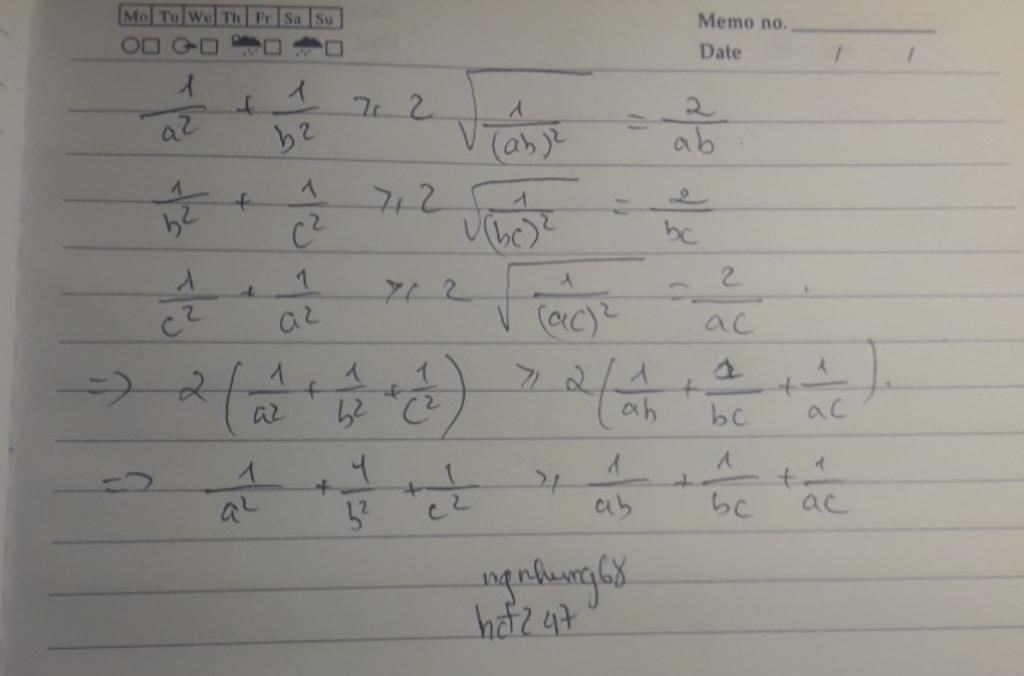 Mo Tu We Th Fr Sa Su
Memo no.
Date / /
1/a² + 1/b² ≥ 2 √(1/(ab)²) = 2/ab.
1/b² + 1/c² ≥ 2 √(1/(bc)²) = 2/bc
1/c² + 1/a² ≥ 2 √(1/(ac)²) = 2/ac.
=> 2(1/a² + 1/b² + 1/c²) ≥ 2(1/ab + 1/bc + 1/ac).
=> 1/a² + 1/b² + 1/c² ≥ 1/ab + 1/bc + 1/ac
ngnhung68